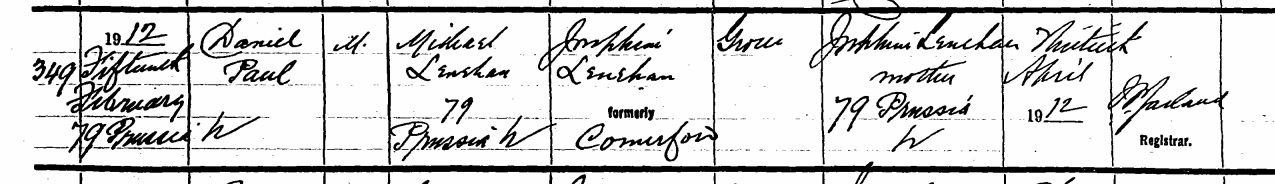 349
1912
Fifteenth
February
79 Prussia St
Daniel
Paul
M.
Michael
Lenehan
79
Prussia St
Josephine
Lenehan
formerly
Comerford
Grocer
Josephine Lenehan
mother
79 Prussia
St
Thirtieth
April
1912
Registrar.